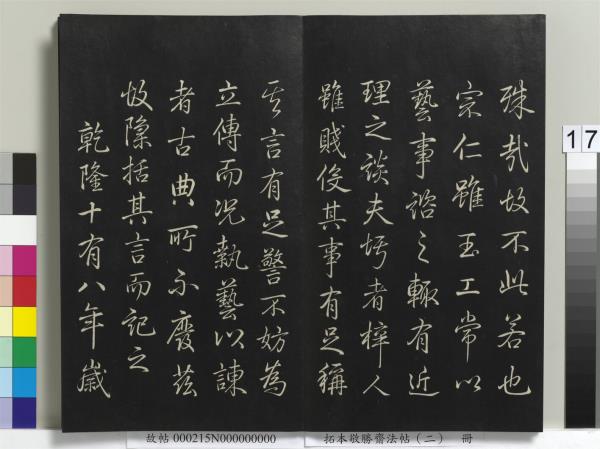 殊哉故不此若也
宗仁雖玉工常以
藝事諮之輒有近
理之談夫圬者梓人
雖賤役其事有足稱
其言有足警不妨為
立傳而況執藝以諫
者古典所不廢茲
故隱括其言而記之
乾隆十有八年歲
17
故帖 000215N000000000
拓本敬勝齋法帖（二） 冊